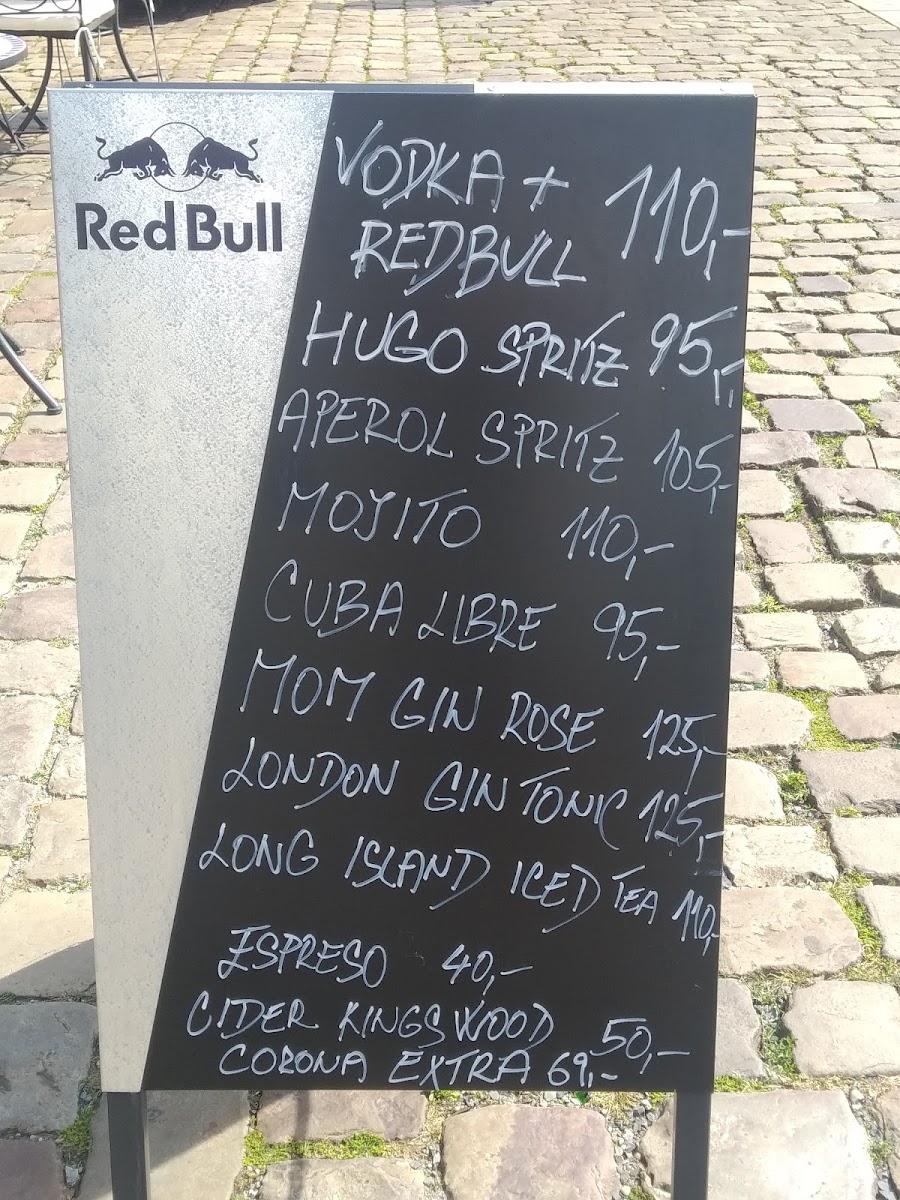 Red Bull
VODKA +
REDBULL 110,-
HUGO SPRITZ 95,-
APEROL SPRITZ 105,-
MOJITO 110,-
CUBA LIBRE 95,-
MOM GIN ROSE 125,-
LONDON GIN TONIC 125,-
LONG ISLAND ICED TEA 110,-
ESPRESO 40,-
CIDER KINGSWOOD 50,-
CORONA EXTRA 69,-